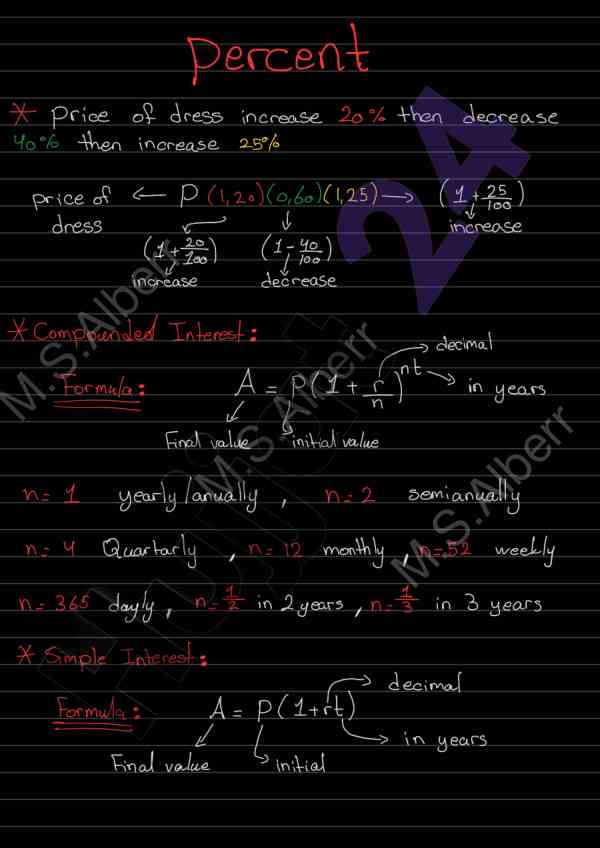 Percent
* Price of dress increase 20% then decrease
40% then increase 25%
price of dress ← P (1,20)(0,60)(1,25) → (1 + 25/100)
increase
(1 + 20/100) (1 - 40/100)
increase decrease
* Compounded Interest:
decimal
Formula: A = P(1 + r/n)^nt → in years
Final value initial value
n=1 yearly/anually, n=2 semianually
n=4 Quartarly, n=12 monthly, n=52 weekly
n=365 dayly, n=1/2 in 2 years, n=1/3 in 3 years
* Simple Interest:
decimal
Formula: A = P(1+rt)
in years
Final value initial
24
M.S.Alberr
M.S.Alberr
M.S.Alberr